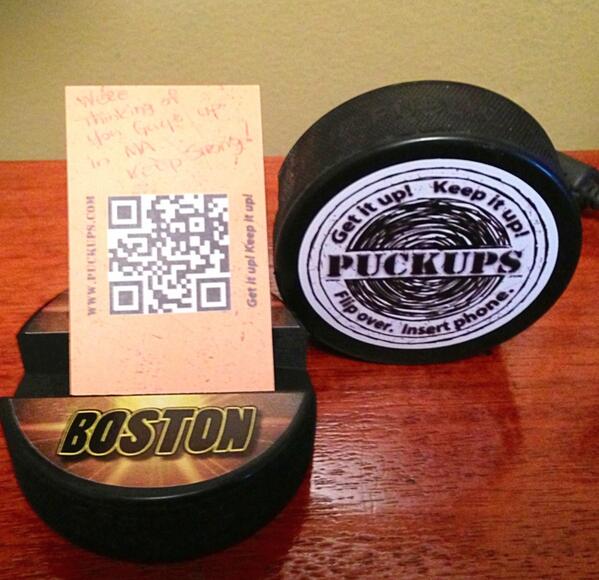 We're
thinking of
you Guys up
in MA
Keep Strong!
WWW.PUCKUPS.COM
Get it up! Keep it up!
BOSTON
Get it up! Keep it up!
PUCKUPS
Flip over. Insert phone.